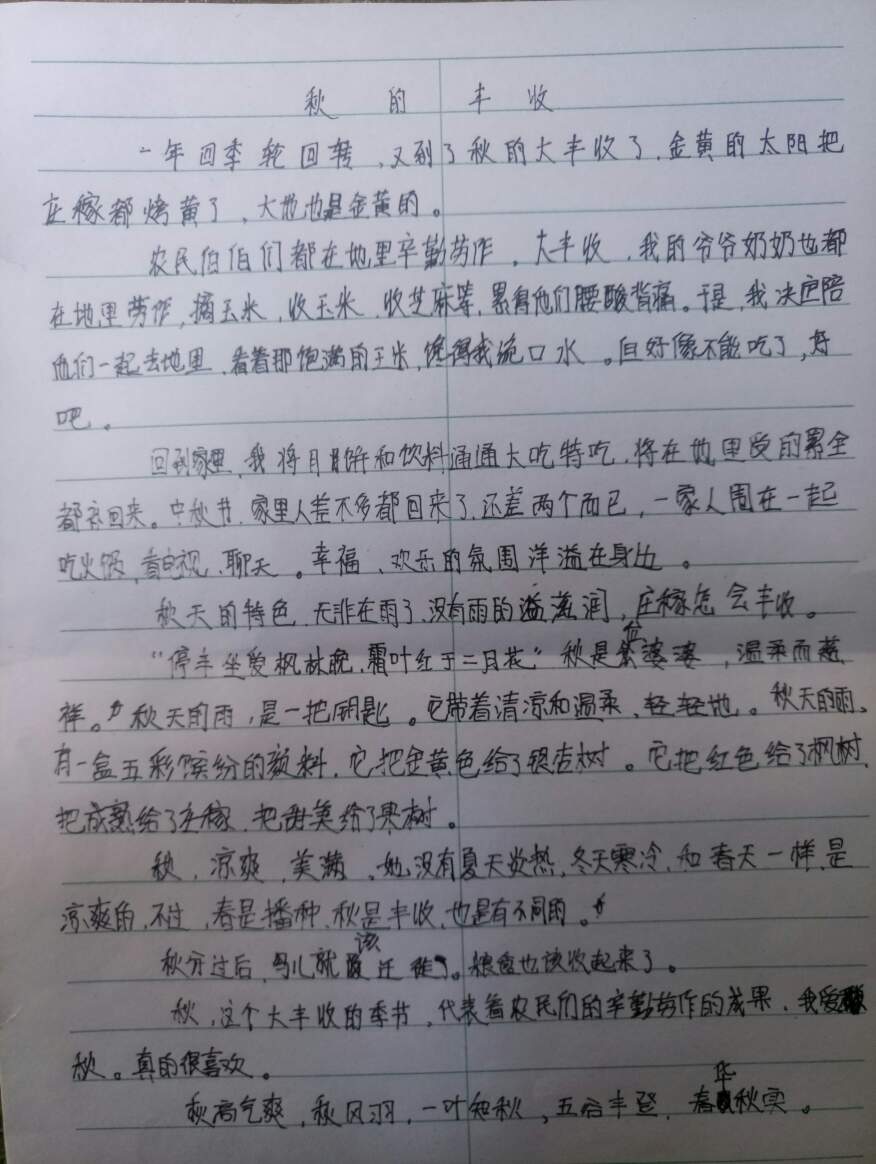 秋的丰收
一年四季轮回转,又到了秋的大丰收了,金黄的太阳把
庄稼都烤黄了,大地也是金黄的。
农民伯伯们都在地里辛勤劳作,大丰收,我的爷爷奶奶也都
在地里劳作,摘玉米,收玉米,收芝麻等,累得他们腰酸背痛。于是,我决定陪
他们一起去地里,看着那饱满的玉米,馋得我流口水。但好像不能吃了,好
吧。
回到家里,我将月饼和饮料通通大吃特吃,将在地里受的累全
都补回来。中秋节,家里人差不多都回来了,还差两个而已,一家人围在一起
吃火锅,看电视,聊天。幸福、欢乐的氛围洋溢在身边。
秋天的特色,无非在雨了,没有雨的滋润,庄稼怎会丰收。
“停车坐爱枫林晚,霜叶红于二月花”秋是位婆婆,温柔而慈
祥。秋天的雨,是一把钥匙。它带着清凉和温柔,轻轻地。秋天的雨,
有一盒五彩缤纷的颜料,它把金黄色给了银杏树。它把红色给了枫树,
把成熟给了庄稼,把甜美给了果树。
秋,凉爽,美满,她没有夏天炎热,冬天寒冷,和春天一样,是
凉爽的,不过,春是播种,秋是丰收,也是有不同的。
秋分过后,鸟儿就该迁徙了。粮食也该收起来了。
秋,这个大丰收的季节,代表着农民们的辛勤劳作的成果,我爱
秋。真的很喜欢。
秋高气爽,秋风习习,一叶知秋,五谷丰登,春华秋实。